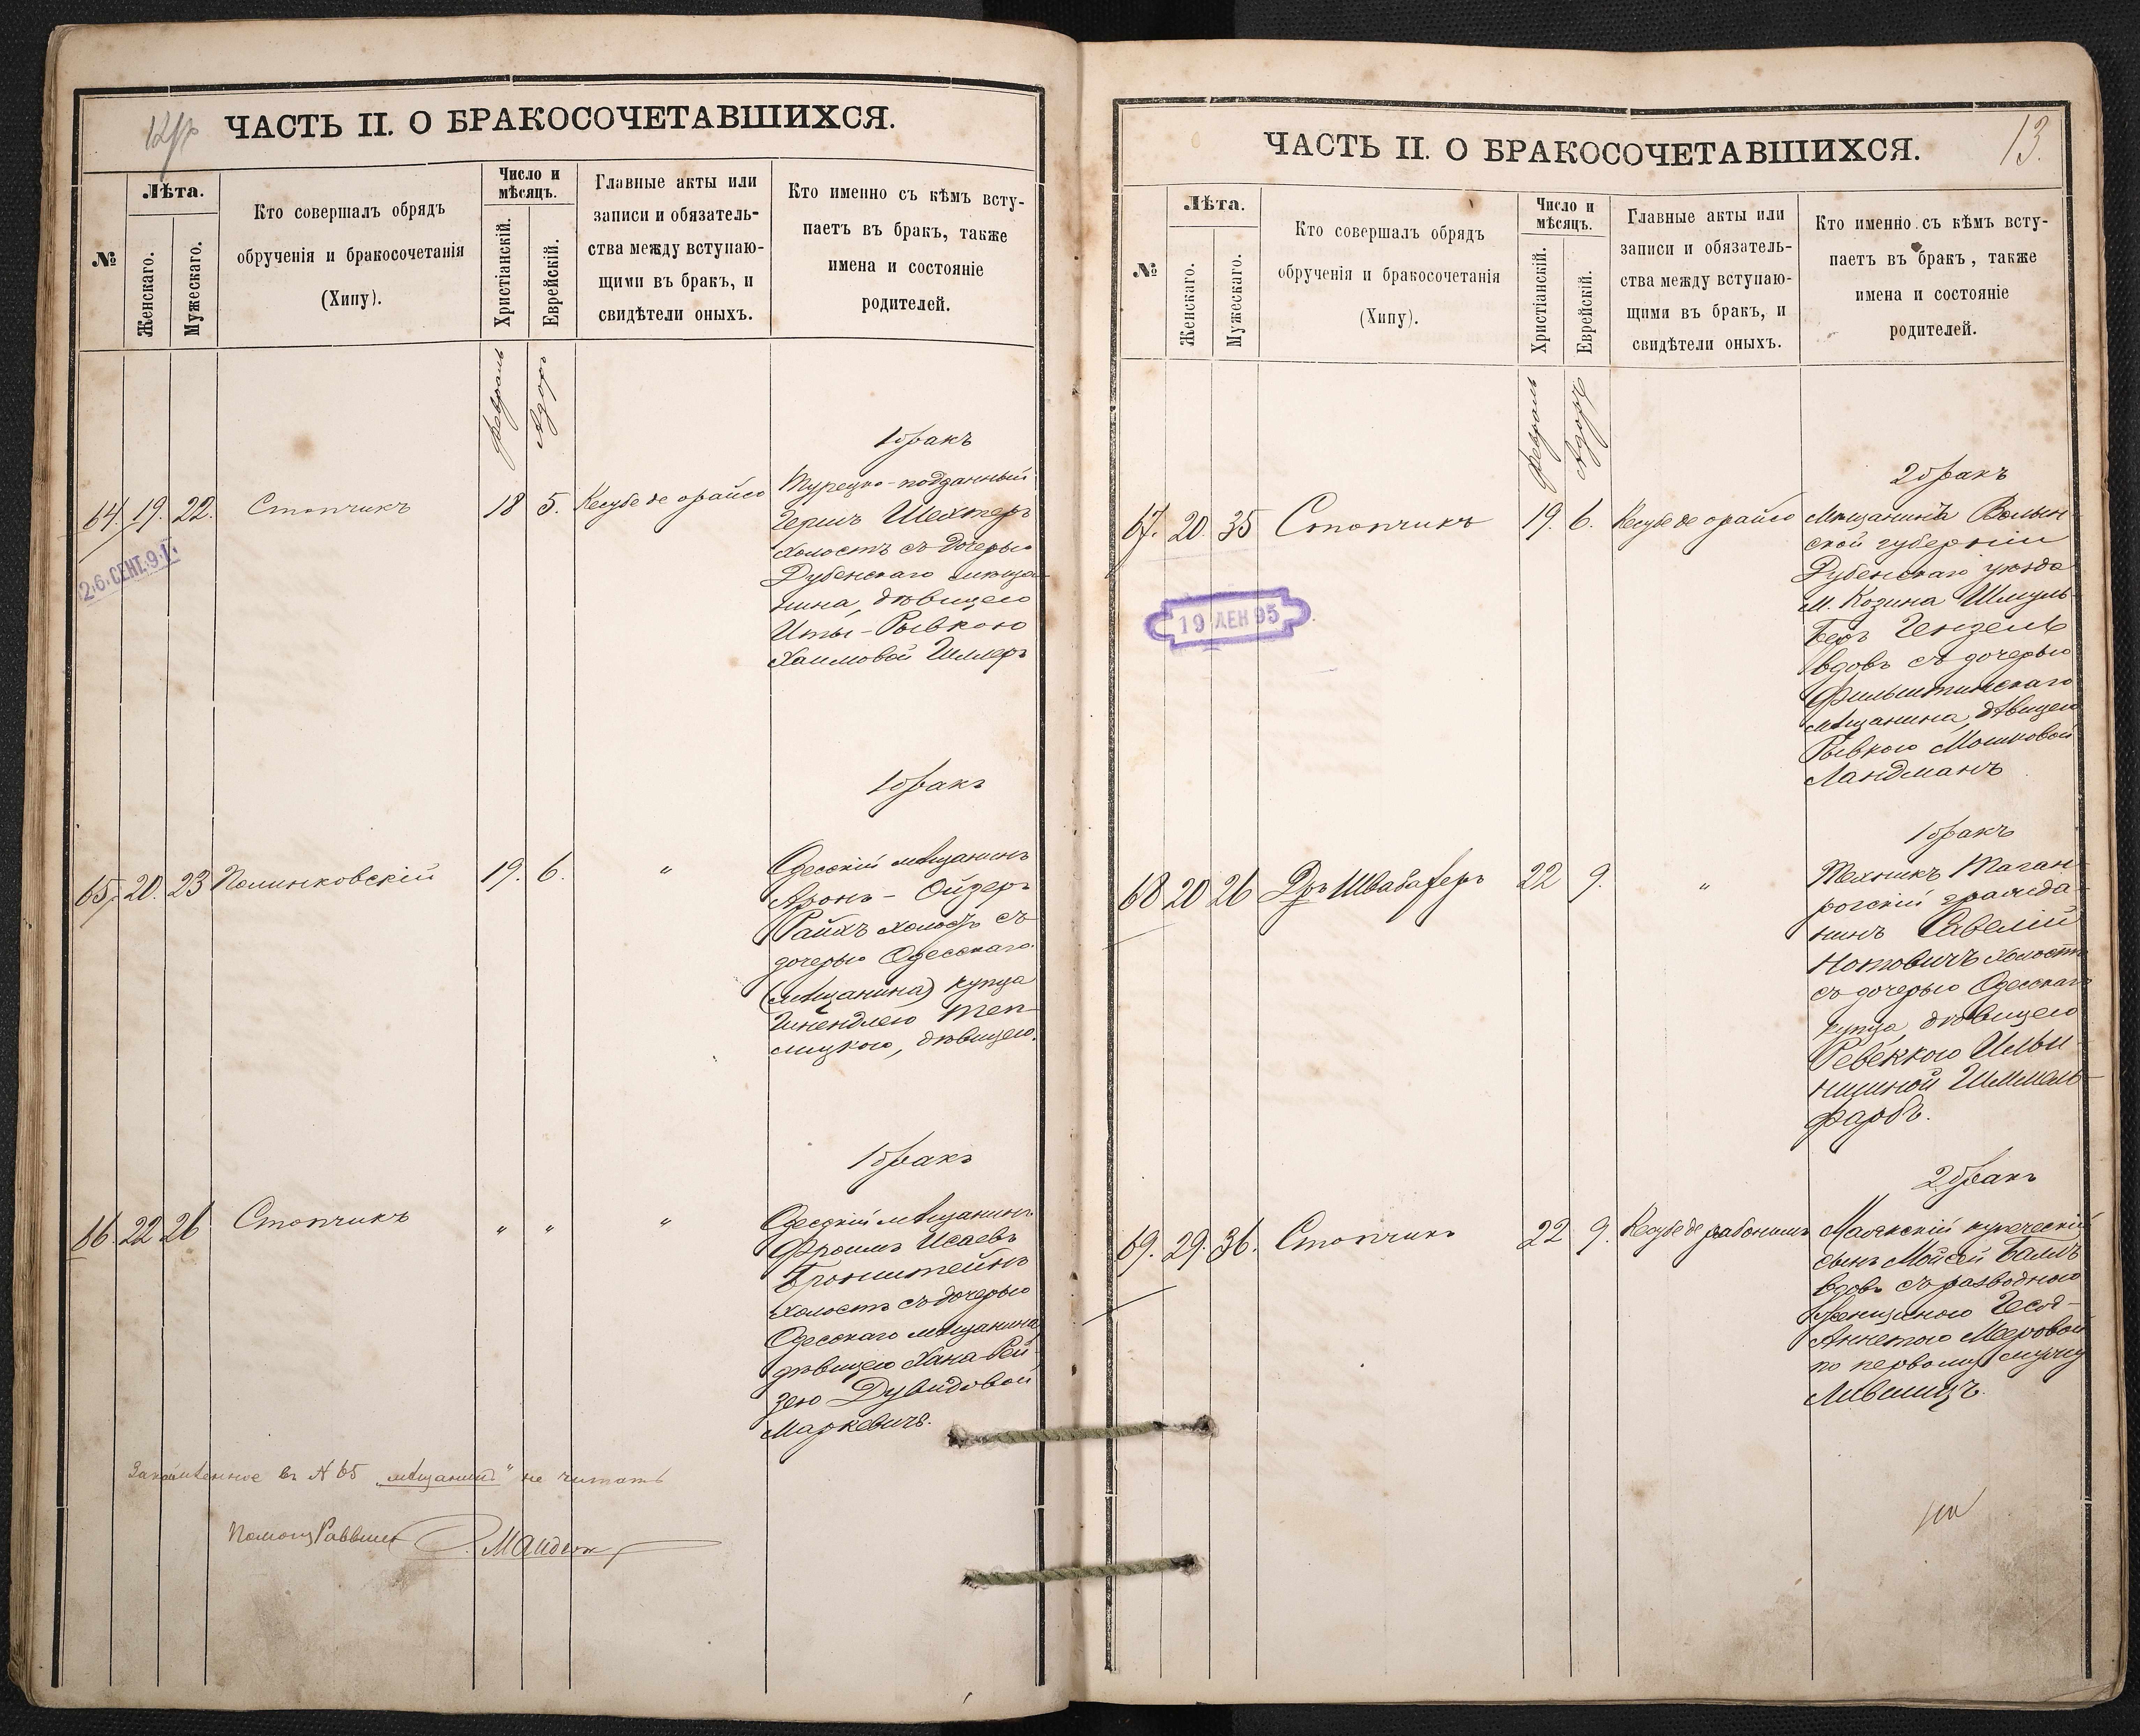 ЧАСТЬ II. О БРАКОСОЧЕТАВШИХСЯ.
№
Лѣта.
Женскаго.
Мужескаго.
Кто совершалъ обрядъ
обрученія и бракосочетанія
(Хипу).
Число и
мѣсяцъ.
Христіанскій.
Еврейскій.
Главные акты или
записи и обязатель-
ства между вступаю-
щими въ бракъ, и
свидѣтели оныхъ.
Кто именно съ кѣмъ всту-
паетъ въ бракъ, также
имена и состояніе
родителей.
Февраль
Адоръ
1 бракъ
64. 19. 22. Стопчикъ 18 5. Кесубе де орайсо
Турецко-подданный
Гершъ Шехтеръ
холостъ съ дочерью
Дубенскаго мѣща-
нина, дѣвицею
Иты-Рывкою
Хаимовой Шмеръ
26.СЕНТ.91.
1 бракъ
65. 20. 23 Полинковскій 19. 6. "
Одесскій мѣщанинъ
Аронъ-Ойзеръ
Райхъ холостъ съ
дочерью Одесскаго
(мѣщанина) купца
Шнендлею Теп-
лицкою, дѣвицею.
1 бракъ
66. 22 26 Стопчикъ " " "
Одесскій мѣщанинъ
Фроимъ Исаевъ
Бронштейнъ
холостъ съ дочерью
Одесскаго мѣщанина
дѣвицею Хана-Рей-
зею Дувидовой
Маркевичъ.
въ № 65 „мѣщанина" не читать
Помощ Раввина
13.
ЧАСТЬ II. О БРАКОСОЧЕТАВШИХСЯ.
№
Лѣта.
Женскаго.
Мужескаго.
Кто совершалъ обрядъ
обрученія и бракосочетанія
(Хипу).
Число и
мѣсяцъ.
Христіанскій.
Еврейскій.
Главные акты или
записи и обязатель-
ства между вступаю-
щими въ бракъ, и
свидѣтели оныхъ.
Кто именно съ кѣмъ всту-
паетъ въ бракъ, также
имена и состояніе
родителей.
Февраль
Адоръ
2 бракъ
67. 20. 35 Стопчикъ 19. 6. Кесубе де орайсо
Мѣщанинъ Волын-
ской губерніи
Дубенскаго уѣзда
м. Козина Шмуль-
Беръ Гензель
вдовъ съ дочерью
Фельштинскаго
мѣщанина, дѣвицею
Рывкою Мошковой
Ландманъ
19 ДЕК 95
1 бракъ
68 20 26 Дръ Швабахеръ 22 9. "
Техникъ Таган-
рогскій гражда-
нинъ Савелій
Нотовичъ холостъ
съ дочерью Одесскаго
купца, дѣвицею
Ревеккою Ильи-
нишной Шммель-
фарбъ.
2 бракъ
69. 29. 36. Стопчикъ 22 9. Кесубе де рабонимъ
Маякскій купеческій
сынъ Мойсей Балтъ
вдовъ съ разводною
женщиною
Аннетою Меровой
по первому мужу
Лившицъ.